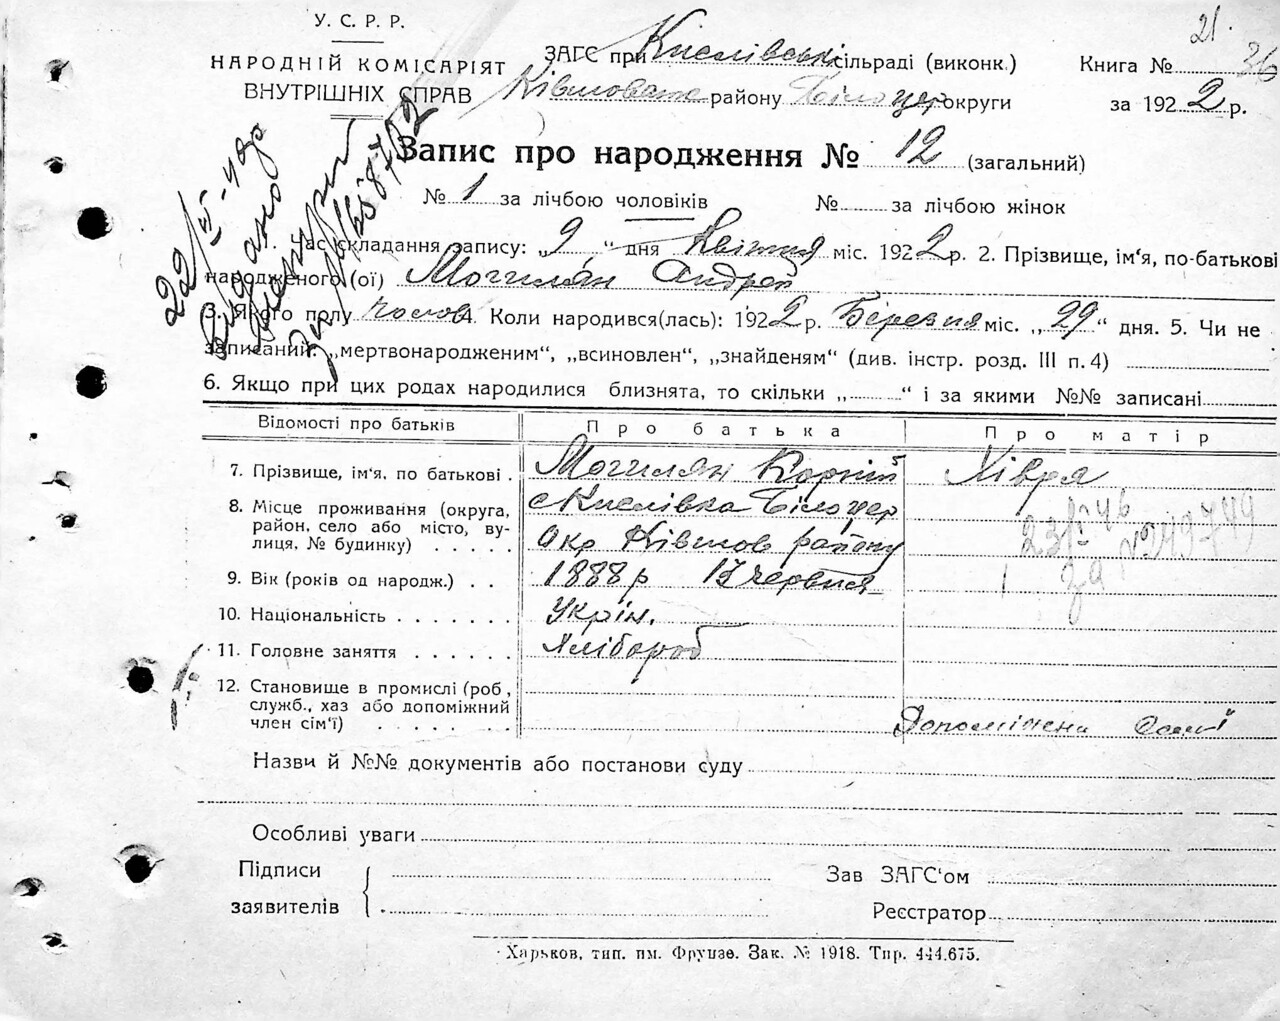 У. С. Р. Р.
НАРОДНІЙ КОМІСАРІЯТ
ВНУТРІШНІХ СПРАВ
21.
ЗАГС при Киселівські сільраді (виконк.) Книга № 36
Ківшовата району Білоцер округи за 1922 р.
Запис про народження № 12 (загальний)
№ 1 за лічбою чоловіків № за лічбою жінок
1. Час складання запису: „9“ дня Квітня міс. 1922 р. 2. Прізвище, ім‘я, по-батькові
народженого (ої) Могилян Андрей
3. Якого полу чолов 4. Коли народився(лась): 1922 р. Березня міс. „29“ дня. 5. Чи не
записаний: „мертвонародженим“, „всиновлен“, „знайденям“ (див. інстр. розд. III п. 4)
6. Якщо при цих родах народилися близнята, то скільки „ “ і за якими №№ записані
Відомості про батьків Про батька Про матір
7. Прізвище, ім‘я, по батькові . Могилян Корній Хівря
8. Місце проживання (округа, с Киселівка Білоцер
район, село або місто, ву-
лиця, № будинку) . . . . . Окр Ківшов району
9. Вік (років од народж.) . . 1888 р 15 червня
10. Національність . . . . . . . Украін.
11. Головне заняття . . . . . . Хлібороб
12. Становище в промислі (роб,
служб., хаз або допоміжний
член сім‘ї) . . . . . . Допоміжена
Назви й №№ документів або постанови суду
Особливі уваги
Підписи
заявителів
Зав ЗАГС‘ом
Реєстратор
Харьков, тип. им. Фрунзе. Зак. № 1918. Тир. 444.675.